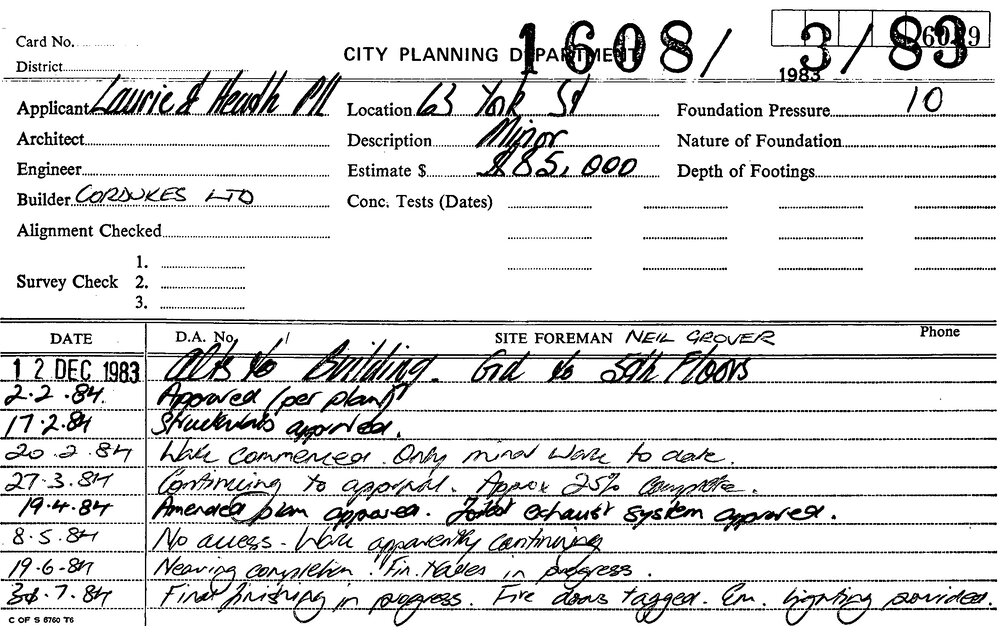 6029
Card No.
CITY PLANNING DEPARTMENT 1608/3/83
District
1983
Applicant Laurie & Heath P/L Location 63 York St Foundation Pressure 10
Architect Description Minor Nature of Foundation
Engineer Estimate $ $85,000 Depth of Footings
Builder CORDUKES LTD Conc. Tests (Dates)
Alignment Checked
1.
Survey Check 2.
3.
DATE D.A. No. / SITE FOREMAN NEIL GROVER Phone
12 DEC 1983 Alts to Building. Gd to 5th Floors
2.2.84. Approved (per plan)
17.2.84 Structurals approved.
20.2.84 Work commenced. Only minor work to date.
27.3.84 Continuing to approval. Approx 25% complete.
19.4.84 Amended plan approved. Toilet exhaust system approved.
8.5.84 No access - Work apparently continuing
19.6.84 Nearing completion. Fin. trades in progress.
7.84 Final finishing in progress. Fire doors tagged. Em. lighting provided.
C OF S 6760 T6